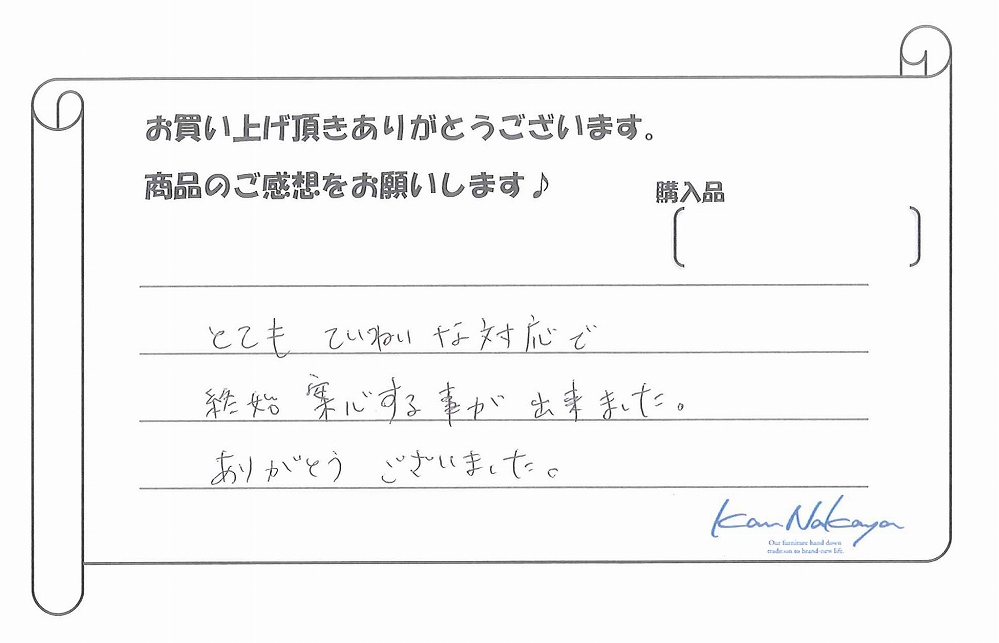 お買い上げ頂きありがとうございます。
商品のご感想をお願いします♪
購入品
とても ていねいな対応で
終始 案心する事が 出来ました。
ありがとう ございました。
Kan Nakaya
Our furniture hand down
tradition to brand-new life.